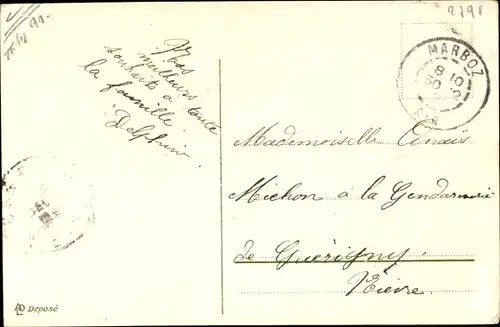 2798
Vos
meilleurs
souhaits à toute
la famille.
Delphin
MARBOZ
8 10
30 12
Mademoiselle Anaïs
Michon à la Gendarmerie
de Guérigny.
Nièvre.
Déposé